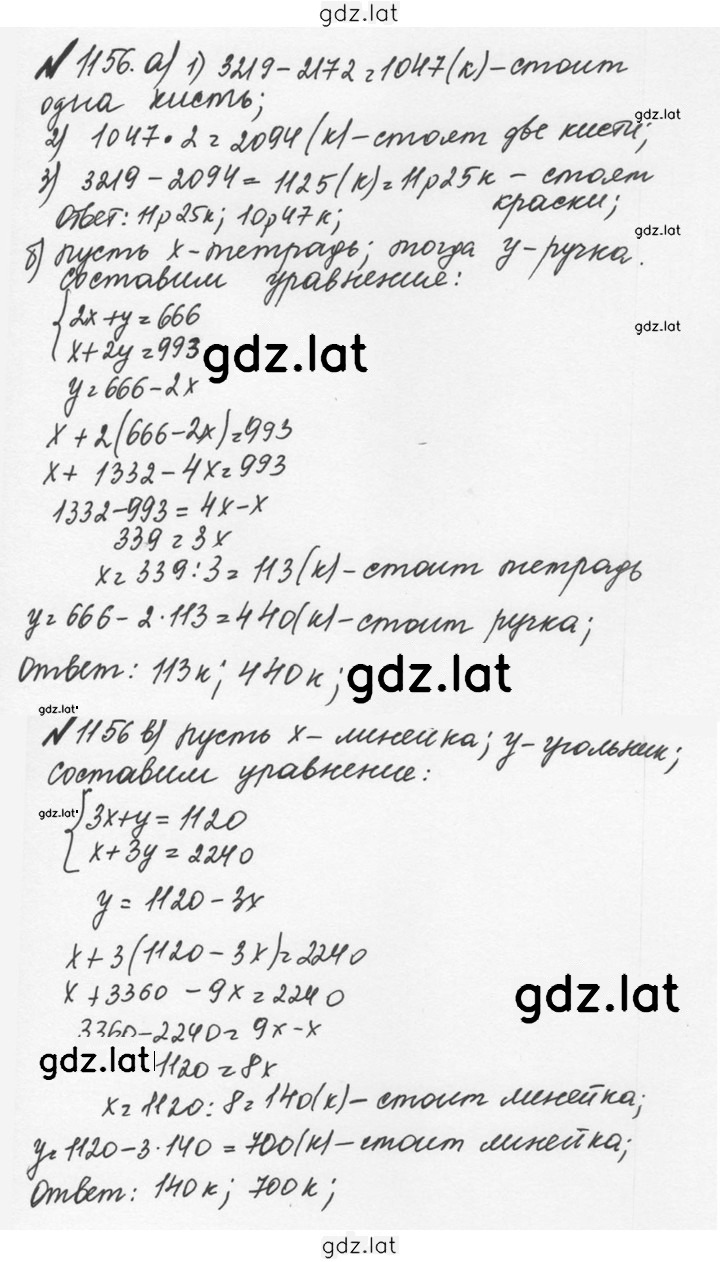 gdz.lat
№ 1156. а) 1) 3219 - 2172 = 1047 (к) - стоит
одна кисть;
gdz.lat
2) 1047 · 2 = 2094 (к) - стоят две кисти;
3) 3219 - 2094 = 1125 (к) = 11р25к - стоят
краски;
Ответ: 11р25к; 10р47к;
gdz.lat
б) пусть х - тетрадь; тогда у - ручка.
Составим уравнение:
{2x + y = 666
gdz.lat
x + 2y = 993
gdz.lat
y = 666 - 2x
x + 2(666 - 2x) = 993
x + 1332 - 4x = 993
1332 - 993 = 4x - x
339 = 3x
x = 339 : 3 = 113 (к) - стоит тетрадь
y = 666 - 2 · 113 = 440 (к) - стоит ручка;
Ответ: 113к; 440к;
gdz.lat
gdz.lat
№ 1156 в) пусть х - линейка; у - угольник;
Составим уравнение:
gdz.lat
{3x + y = 1120
x + 3y = 2240
y = 1120 - 3x
x + 3(1120 - 3x) = 2240
x + 3360 - 9x = 2240
gdz.lat
3360 - 2240 = 9x - x
gdz.lat
1120 = 8x
x = 1120 : 8 = 140 (к) - стоит линейка;
y = 1120 - 3 · 140 = 700 (к) - стоит линейка;
Ответ: 140к; 700к;
gdz.lat